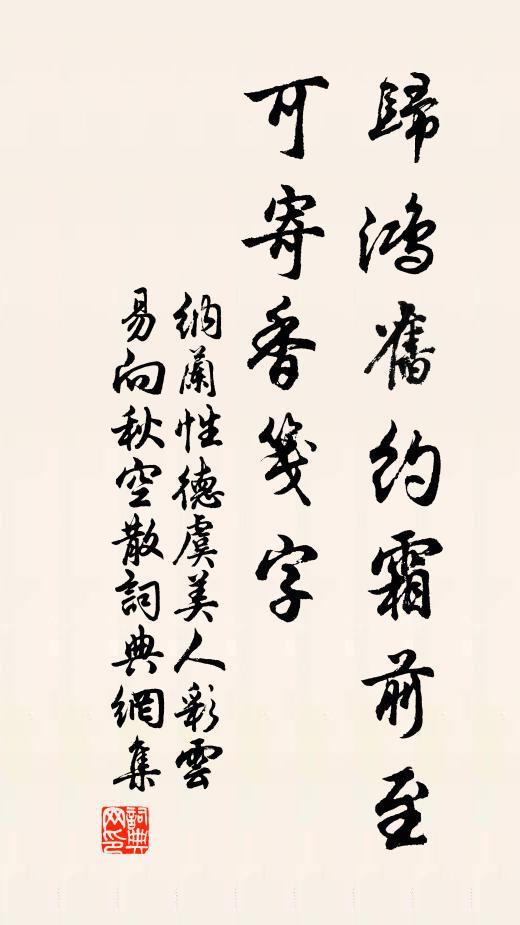 歸鴻舊約霜前至
可寄香箋字
納蘭性德虞美人彩雲
易向秋空散詞典網集
詞典
网印